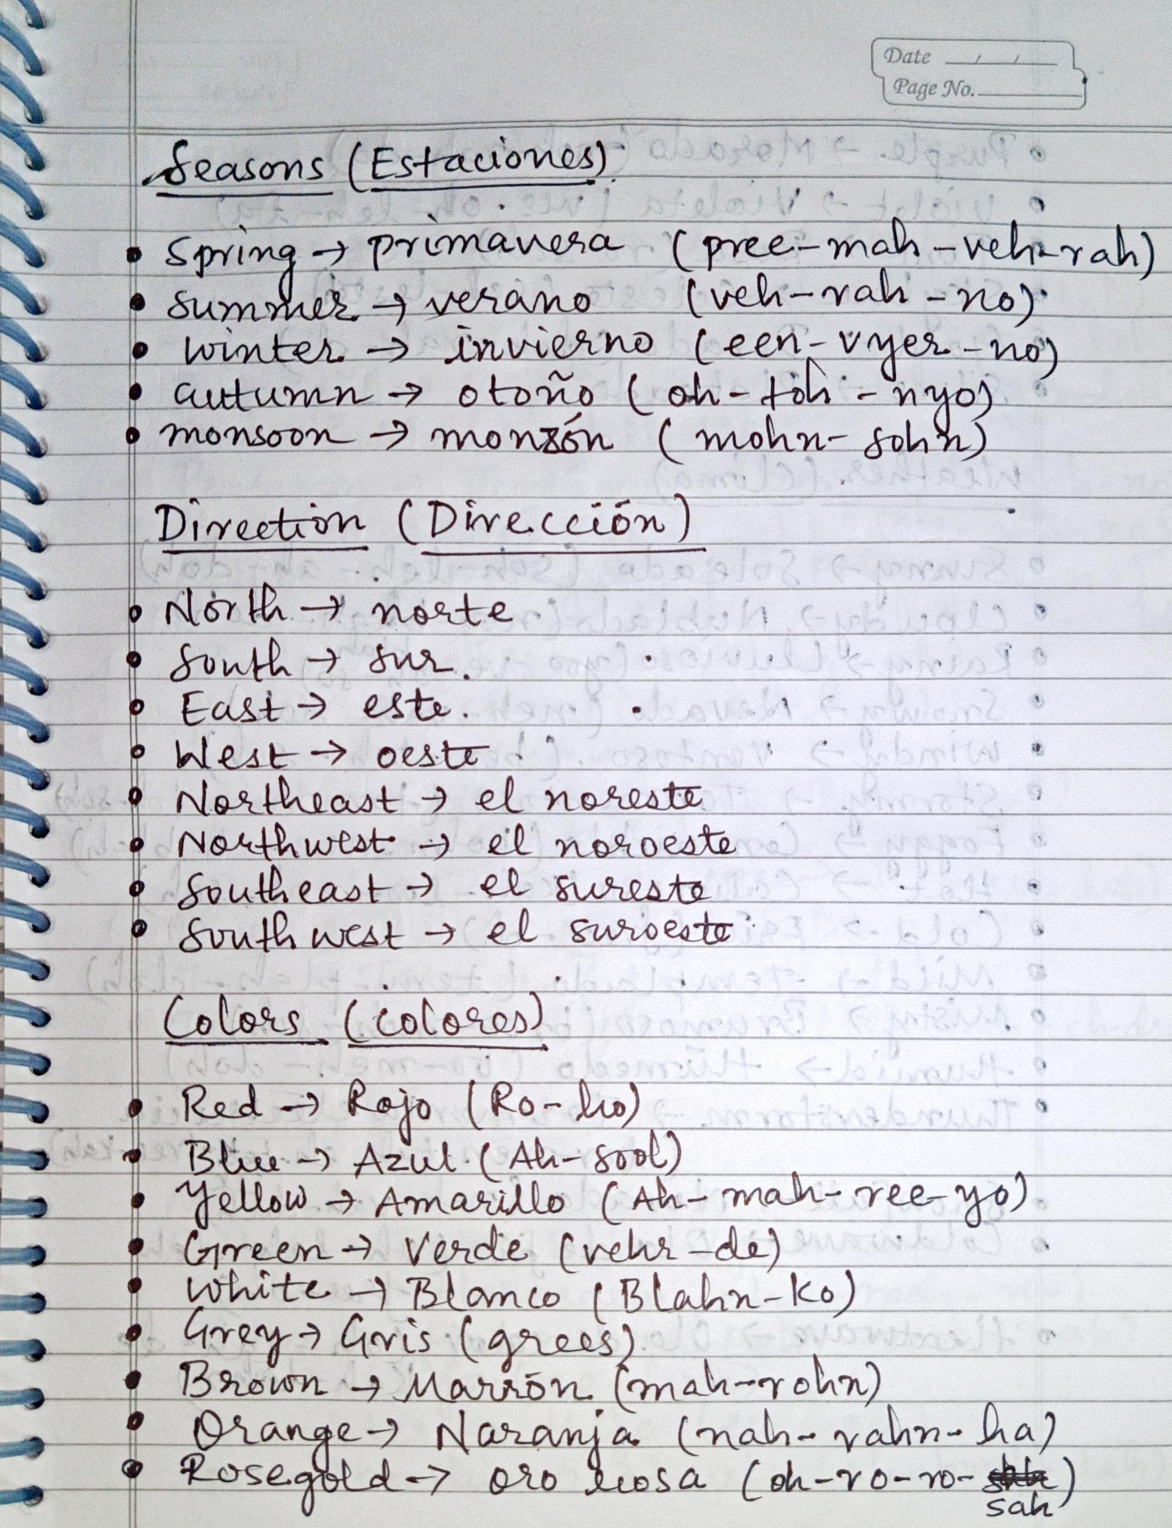 Date / /
Page No.
Seasons (Estaciones)
• Spring → primavera (pree-mah-veh-rah)
• summer → verano (veh-rah-no)
• winter → invierno (een-vyer-no)
• autumn → otoño (oh-toh-nyo)
• monsoon → monzón (mohn-sohn)
Direction (Dirección)
• North → norte
• South → sur.
• East → este.
• West → oeste
• Northeast → el noreste
• Northwest → el noroeste
• Southeast → el sureste
• Southwest → el suroeste
Colors (colores)
• Red → Rojo (Ro-ho)
• Blue → Azul (Ah-sool)
• Yellow → Amarillo (Ah-mah-ree-yo)
• Green → Verde (vehr-de)
• White → Blanco (Blahn-ko)
• Grey → Gris (grees)
• Brown → Marrón (mah-rohn)
• Orange → Naranja (nah-rahn-ha)
• Rosegold → oro rosa (oh-ro-ro-
sah)